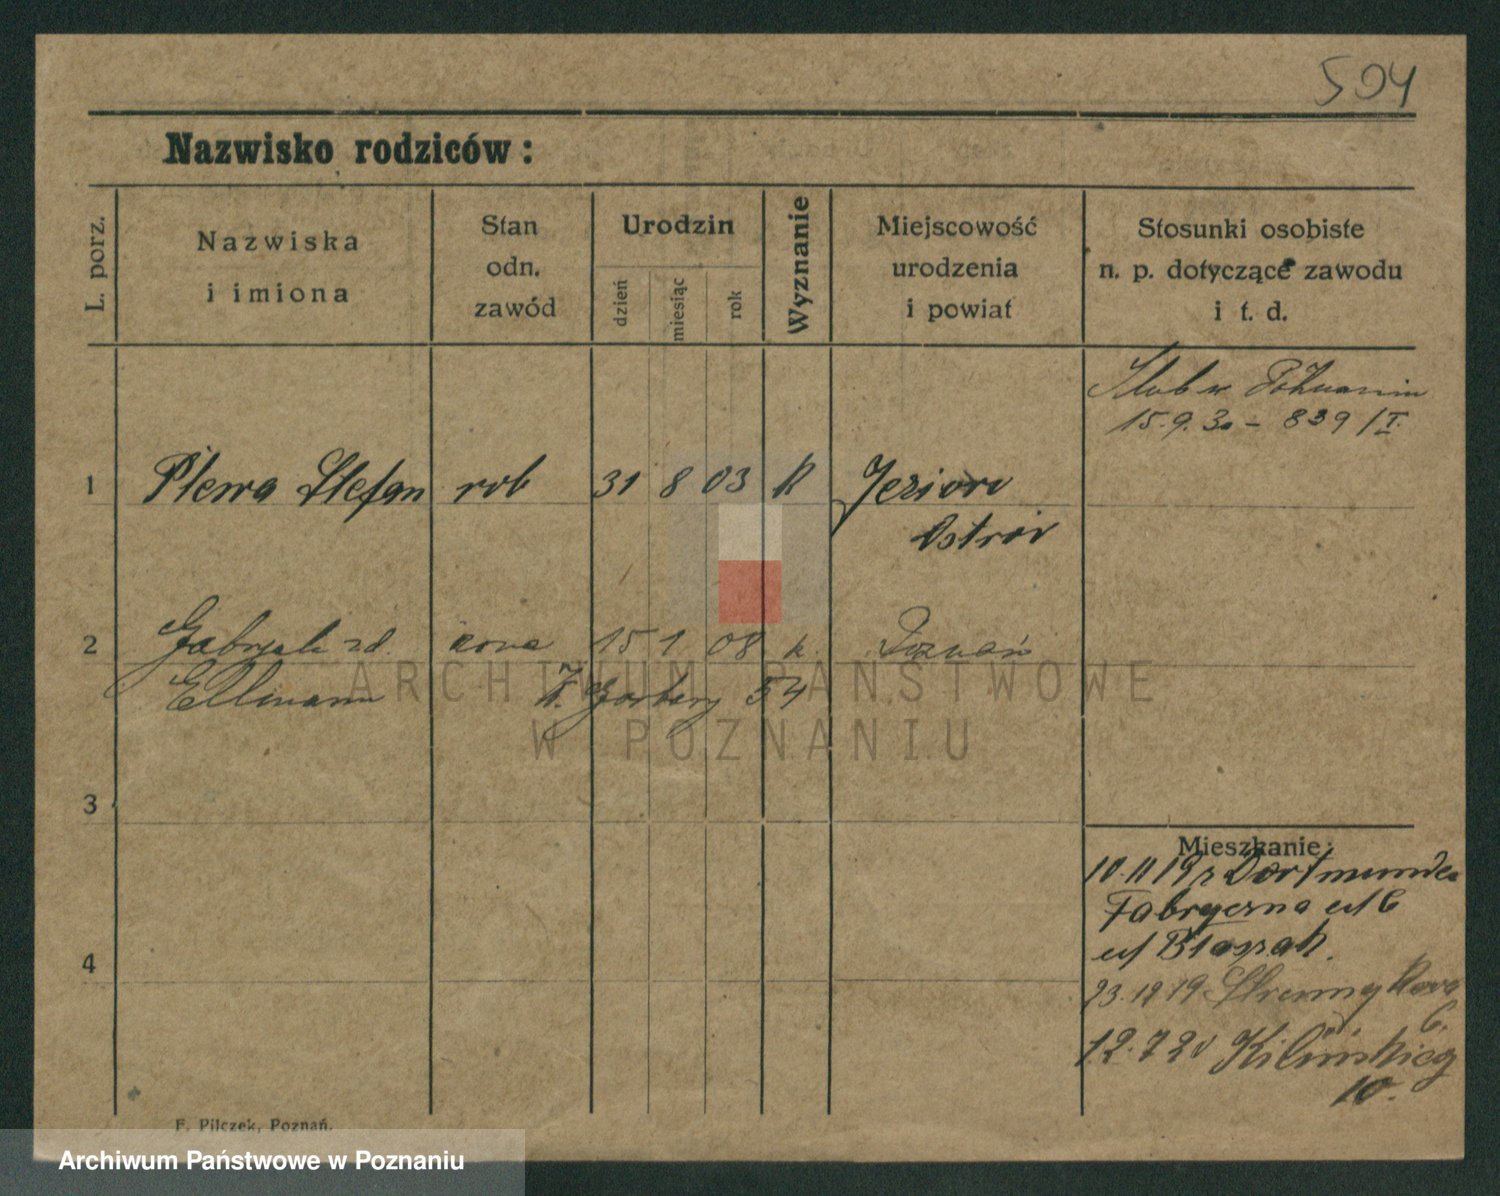 504
Nazwisko rodziców:
L. porz.
Nazwiska
i imiona
Stan
odn.
zawód
Urodzin
dzień
miesiąc
rok
Wyznanie
Miejscowość
urodzenia
i powiat
Stosunki osobiste
n. p. dotyczące zawodu
i t. d.
Ślub w Poznaniu
15.9.30 - 839/I.
1 Plewa Stefan rob 31 8 03 k Jezioro
Ostrów
2 Gabryela zd. żona 15 1 08 k. Poznań
Ellmann Garbary 54
ARCHIWUM PAŃSTWOWE
W POZNANIU
3
4
Mieszkanie:
10.11 19 z Dortmundu
Fabryczna 6
23.12 19 Strumykowa
6.
12.7 20 Kilińskiego
10.
F. Pilczek, Poznań.
Archiwum Państwowe w Poznaniu